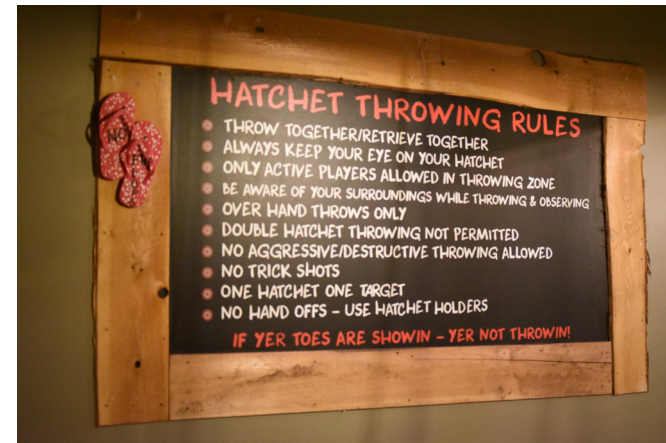 HATCHET THROWING RULES
THROW TOGETHER/RETRIEVE TOGETHER
ALWAYS KEEP YOUR EYE ON YOUR HATCHET
ONLY ACTIVE PLAYERS ALLOWED IN THROWING ZONE
BE AWARE OF YOUR SURROUNDINGS WHILE THROWING & OBSERVING
OVER HAND THROWS ONLY
DOUBLE HATCHET THROWING NOT PERMITTED
NO AGGRESSIVE/DESTRUCTIVE THROWING ALLOWED
NO TRICK SHOTS
ONE HATCHET ONE TARGET
NO HAND OFFS - USE HATCHET HOLDERS
IF YER TOES ARE SHOWIN - YER NOT THROWIN!
NO